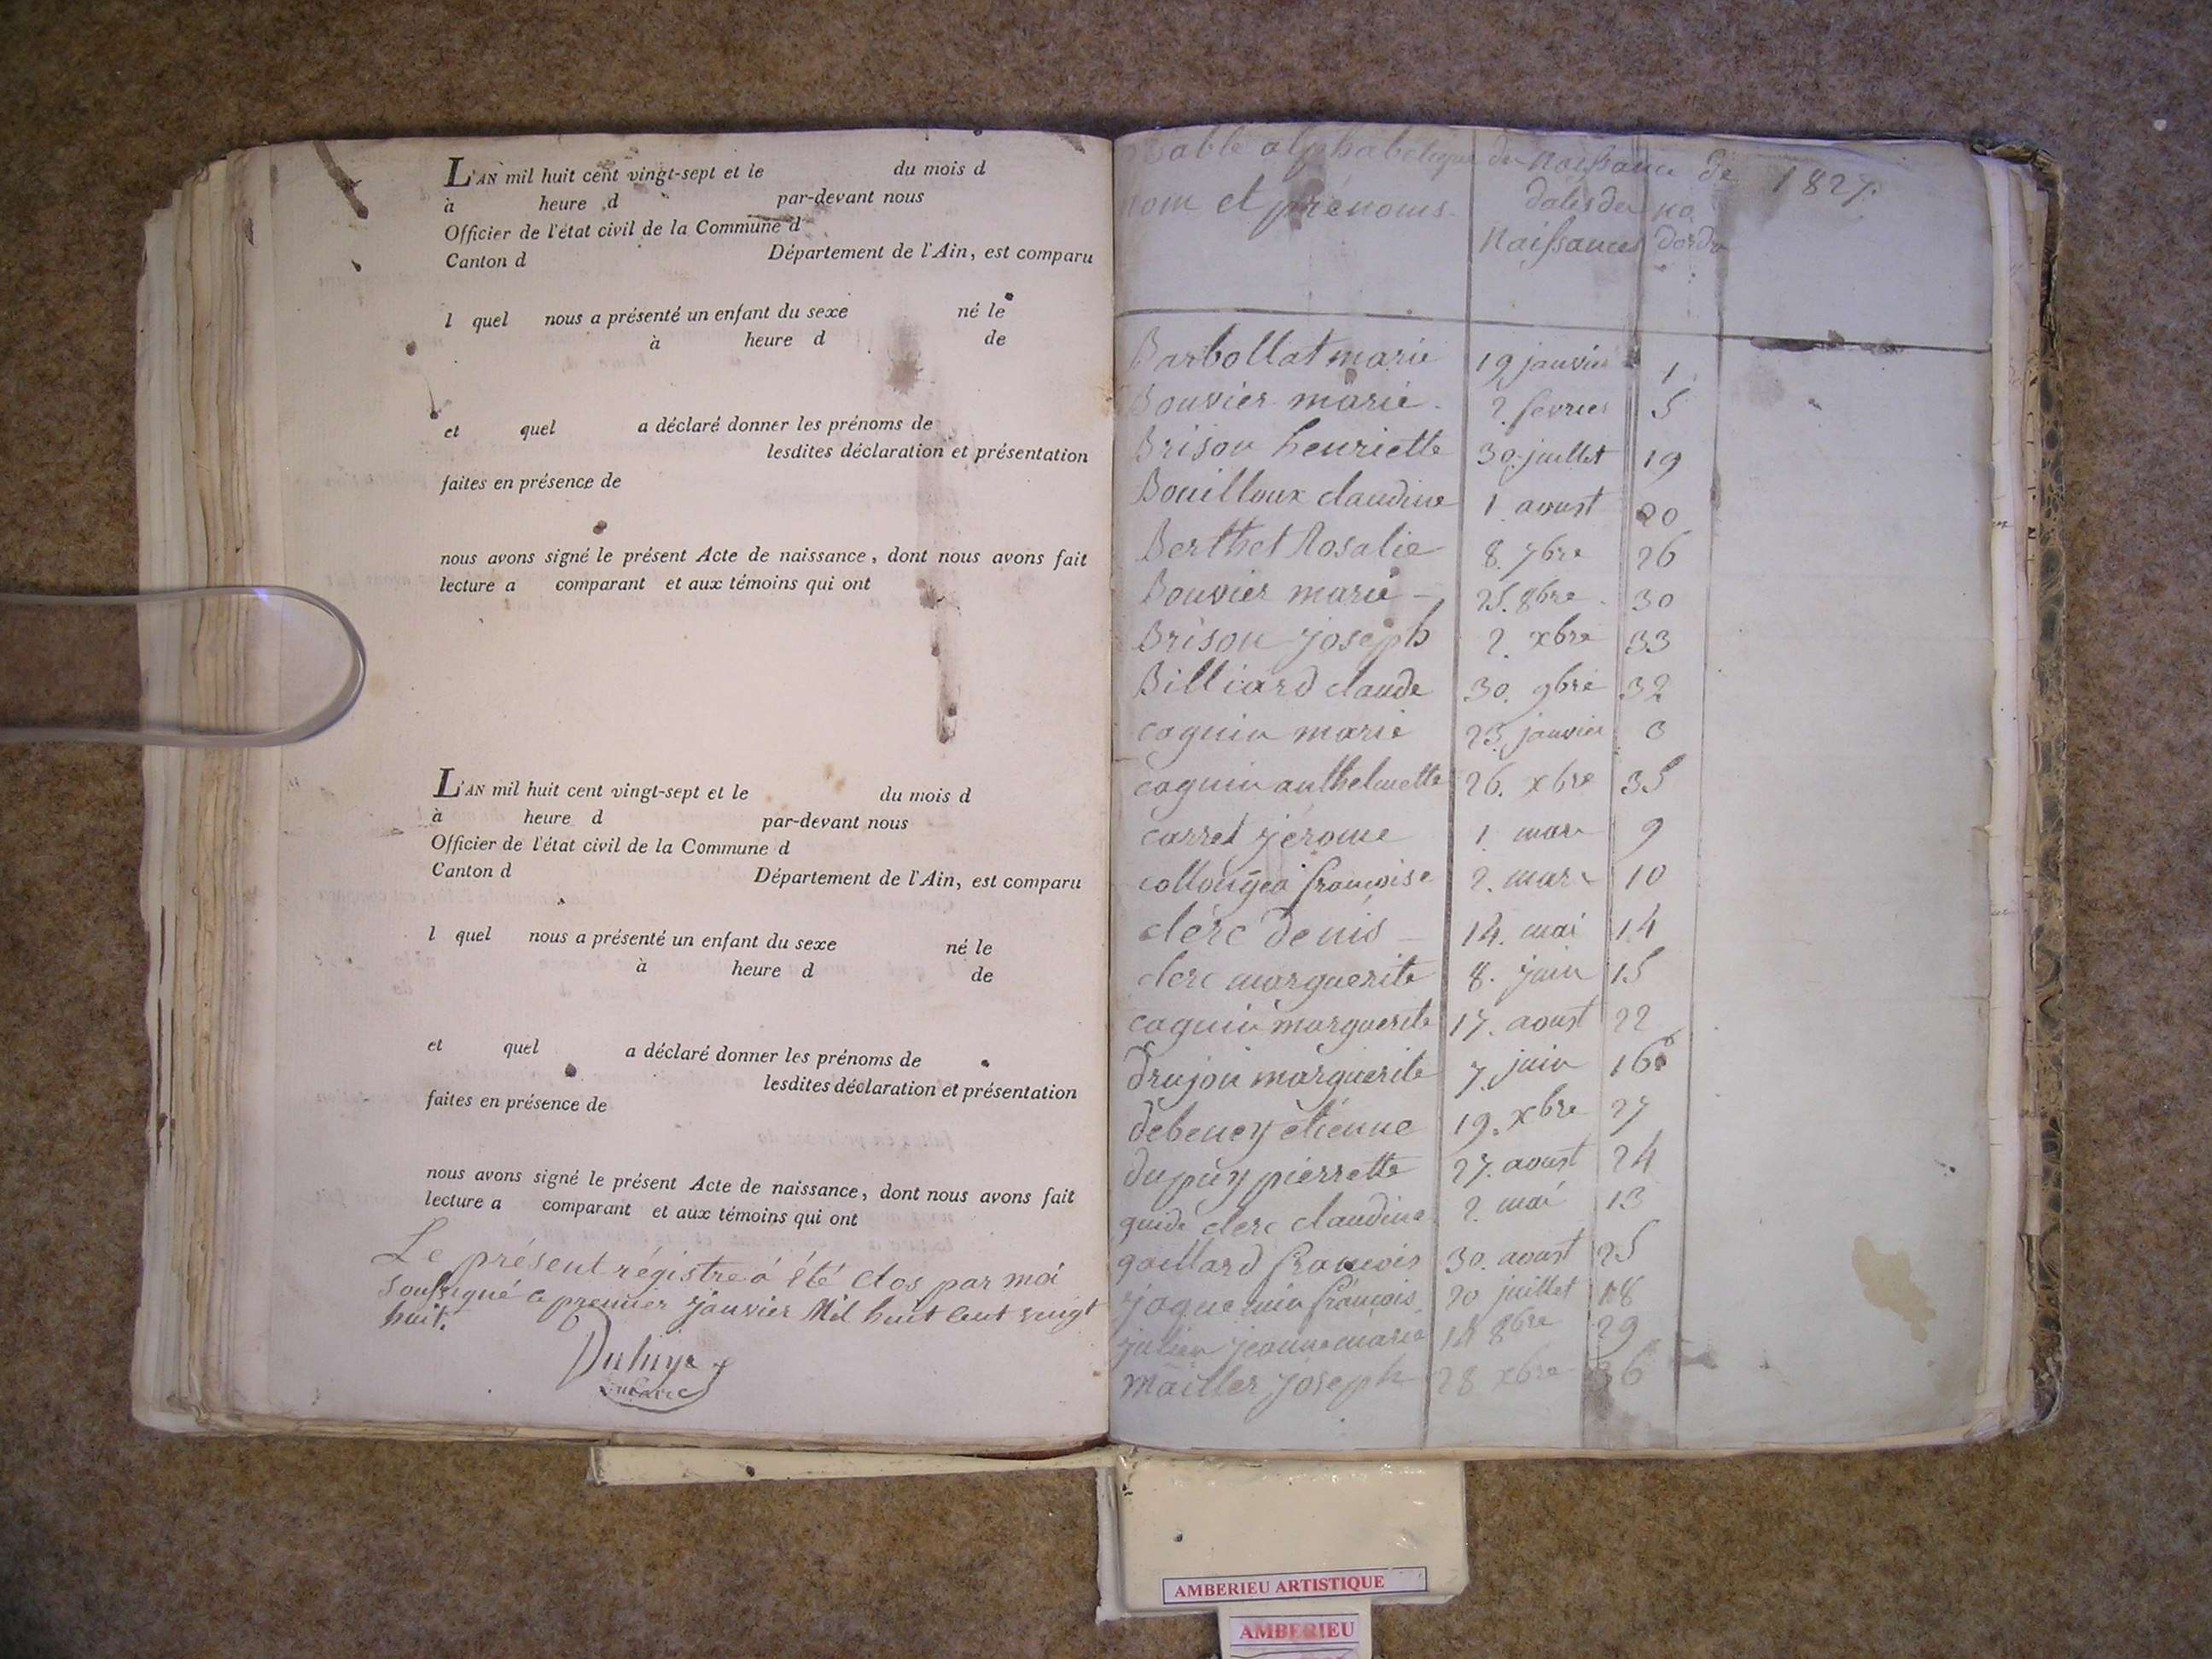 L'AN mil huit cent vingt-sept et le du mois d
à heure d par-devant nous
Officier de l'état civil de la Commune d
Canton d Département de l'Ain, est comparu
l quel nous a présenté un enfant du sexe né le
à heure d de
et quel a déclaré donner les prénoms de
lesdites déclaration et présentation
faites en présence de
nous avons signé le présent Acte de naissance, dont nous avons fait
lecture a comparant et aux témoins qui ont
L'AN mil huit cent vingt-sept et le du mois d
à heure d par-devant nous
Officier de l'état civil de la Commune d
Canton d Département de l'Ain, est comparu
l quel nous a présenté un enfant du sexe né le
à heure d de
et quel a déclaré donner les prénoms de
lesdites déclaration et présentation
faites en présence de
nous avons signé le présent Acte de naissance, dont nous avons fait
lecture a comparant et aux témoins qui ont
Le présent régistre á été clos par moi
Soussigné ce premier janvier Mil huit cent vingt
huit.
table alphabetique des naissance de 1827.
nom et prénoms dates des no
naissances dordre
Barbollat marie 19 janvier 1
Bouvier marie 2 fevrier 5
Brison henriette 30 juillet 19
Bouilloux claudine 1 aoust 20
Berthet Rosalie 8. 7bre 26
Bouvier marie 25. 8bre 30
Brison joseph 2. xbre 33
Billiard claude 30. 9bre 32
coguin marie 23. janvier 3
coguin anthelmette 26. xbre 35
carret jerome 1 mars 9
collonges françoise 2. mars 10
clerc denis 14. mai 14
clerc marguerite 8. juin 15
coguin marguerite 17. aoust 22
drujon marguerite 7 juin 16
debeney etienne 19. xbre 27
dupuy pierrette 27. aoust 24
guide clerc claudine 2. mai 13
gaillard francois 30. aoust 25
joquemin françois 20 juillet 18
julien jeanne marie 14 8bre 29
mailler joseph 28 xbre 36
AMBERIEU ARTISTIQUE
AMBERIEU